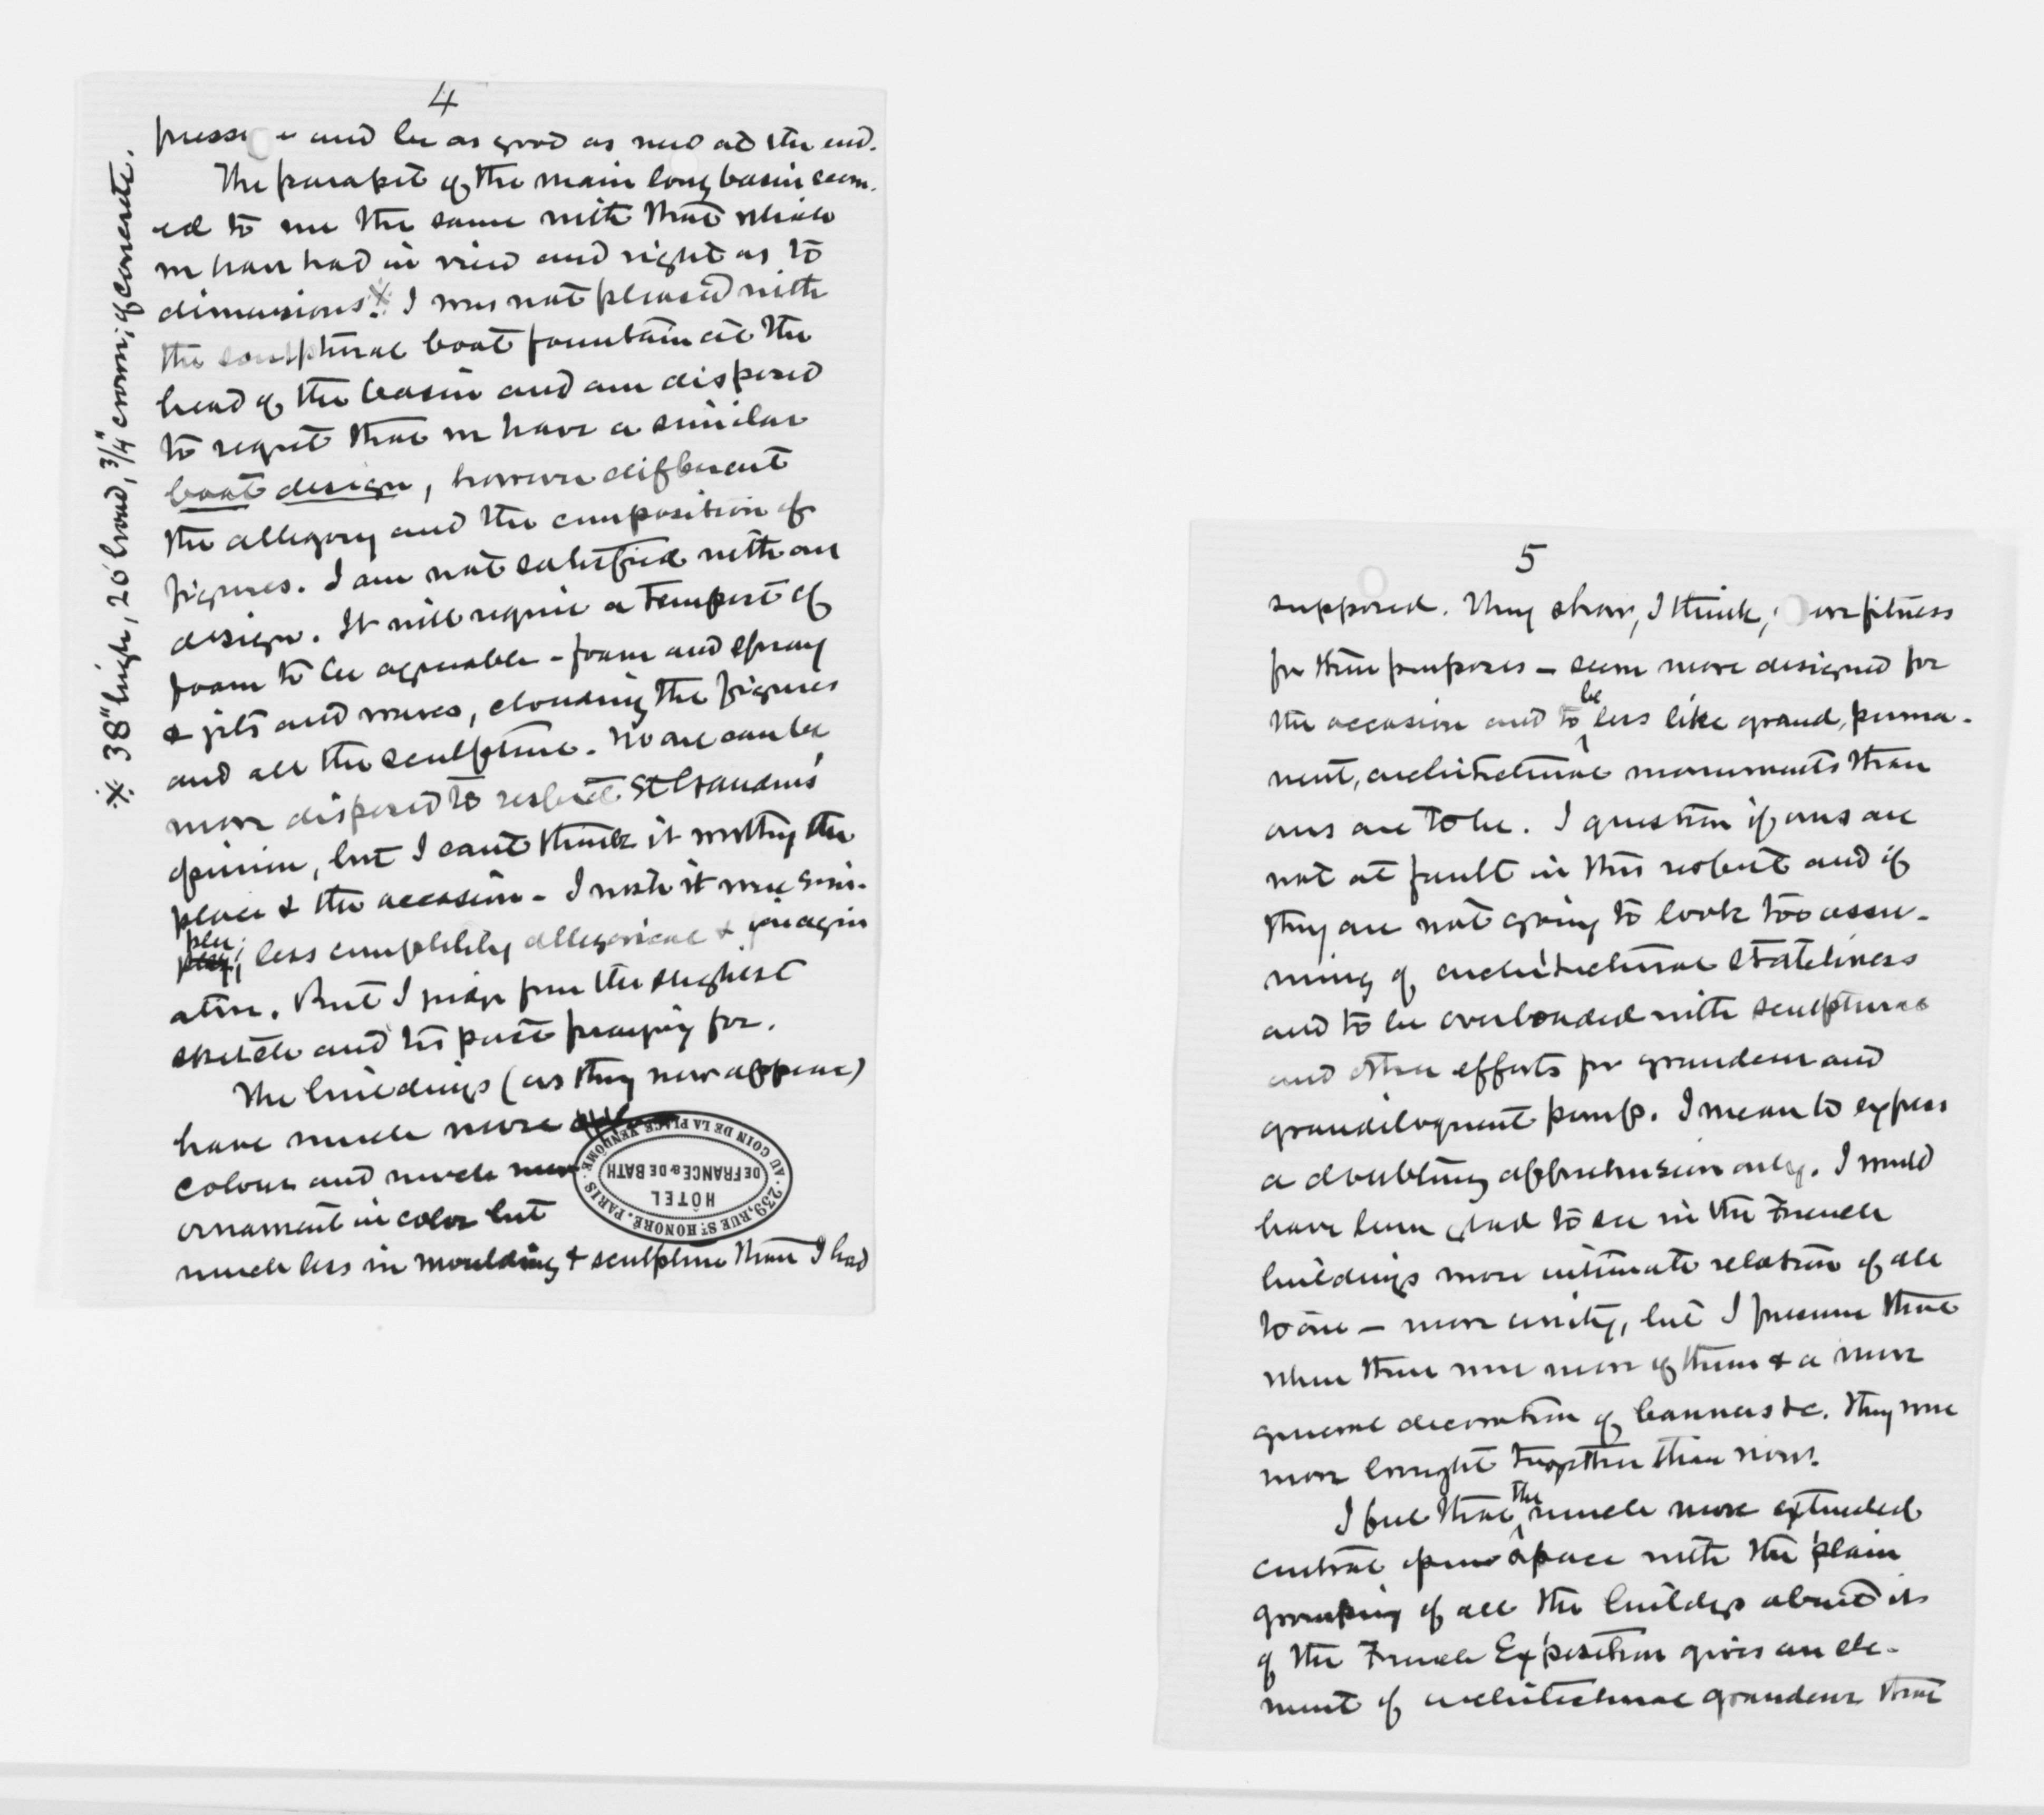 4
press e and be as good as new at the end.
The parapet of the main long basin seem-
ed to me the same with that which
we have had in view and right as to
dimensions.※ I was not pleased with
the sculptural boat fountain at the
head of the basin and am disposed
to regret that we have a similar
boat design, however different
the allegory and the composition of
figures. I am not satisfied with our
design. It will require a tempest of
foam to be agreeable - foam and spray
& jets and waves, clouding the figures
and all the sculpture. No one can be
more disposed to respect St Gaudens'
opinion, but I can't think it worthy the
place & the occasion - I wish it were sim-
ple; less completely allegorical & imagin
ative. But I judge from the slightest
sketch and its past praying for.
The buildings (as they now appear)
have much more
colour and much more
ornament in color but
much less in moulding & sculpture than I had
※ 38" high, 20" broad, 3/4" crown; of concrete.
HÔTEL
DE FRANCE & DE BATH
239, RUE ST. HONORÉ. PARIS.
AU COIN DE LA PLACE VENDÔME
5
supposed. They show, I think, more fitness
for their purposes - seem more designed for
the occasion and to be less like grand, perma-
nent, architectural monuments than
ours are to be. I question if ours are
not at fault in this respect and if
they are not going to look too assu-
ming of architectural stateliness
and to be overloaded with sculptural
and other efforts for grandeur and
grandiloquent pomp. I mean to express
a doubting apprehension only. I would
have been glad to see in the French
buildings more intimate relation of all
to one - more unity, but I presume that
when there were more of them & a more
general decoration of banners &c. they were
more brought together than now.
I feel that the much more extended
central open space with the plain
grouping of all the buildgs about it
of the French Exposition gives an ele-
ment of architectural grandeur that